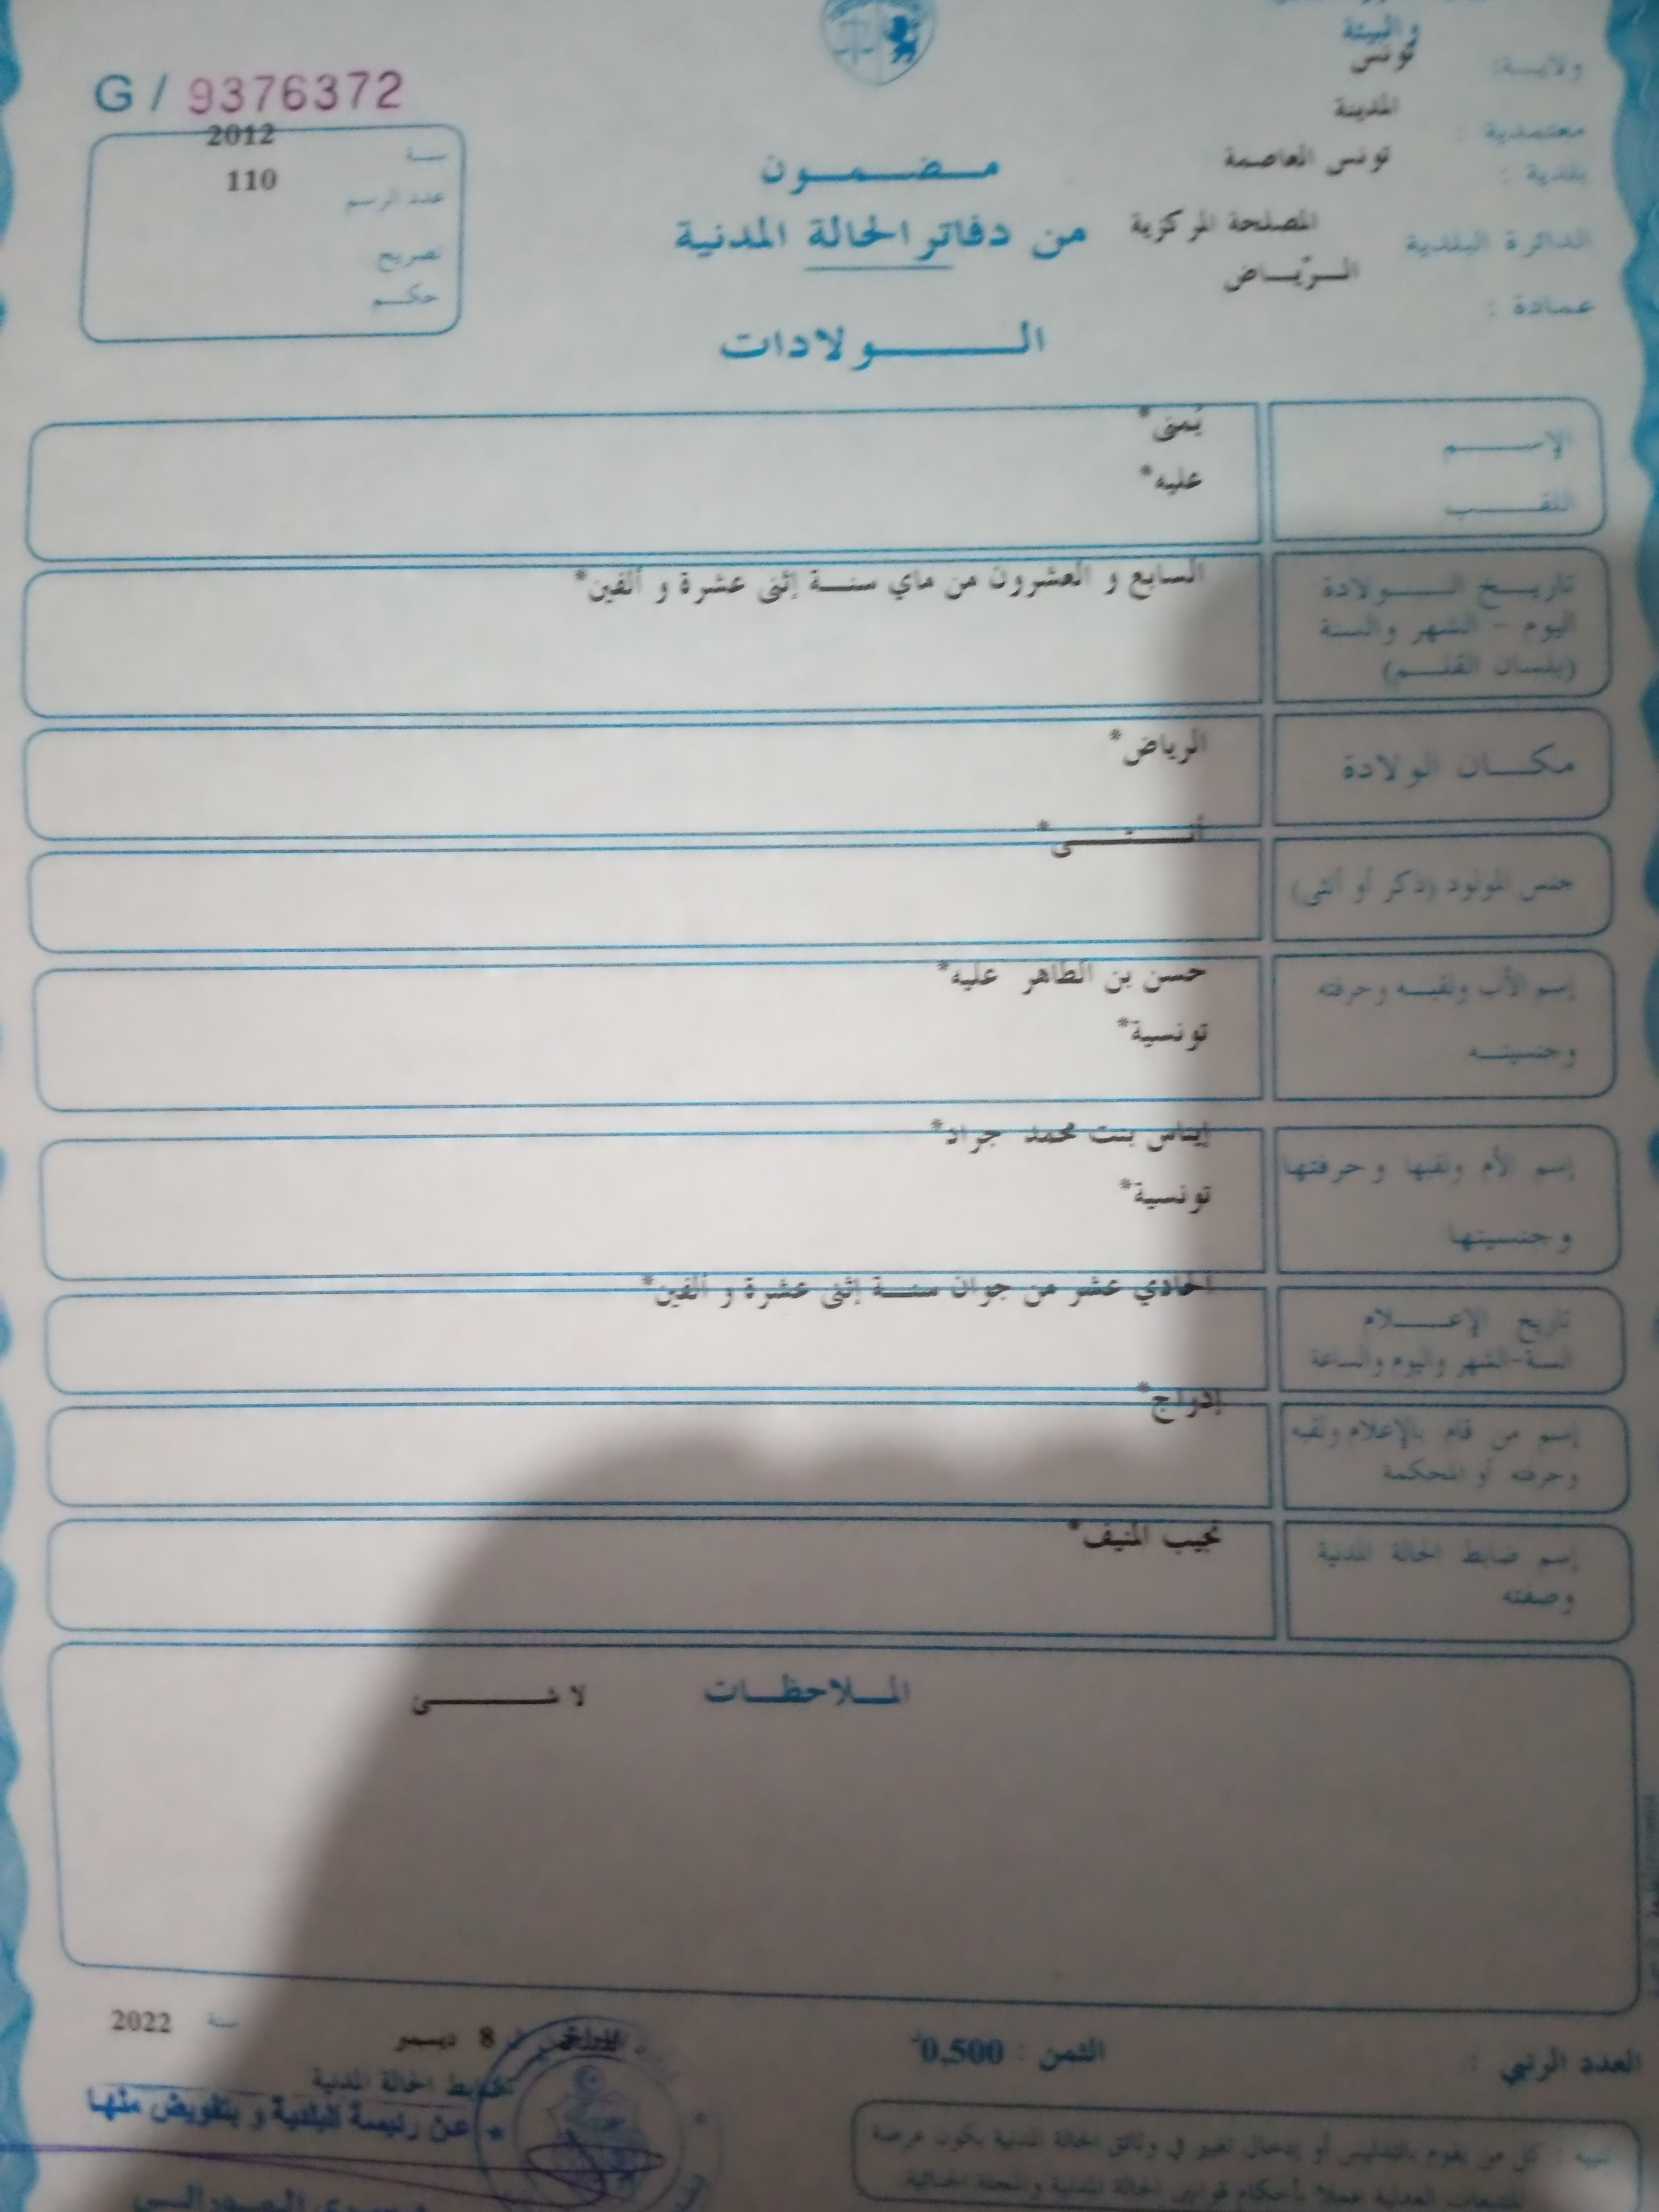 والبيئة
ولايــة: تونس
معتمدية : المدينة
بلدية : تونس العاصمة
الدائرة البلدية المصلحة المركزية
عمادة : الـريّـاض
G / 9376372
سنة 2012
عدد الرسم 110
تصريح
حكم
مضمون
من دفاتر الحالة المدنية
الولادات
الإسم يُمنى*
اللقب عليه*
تاريخ الولادة السابع و العشرون من ماي سنة إثنى عشرة و ألفين*
اليوم - الشهر والسنة
(بلسان القلم)
مكان الولادة الرياض*
جنس المولود (ذكر أو أنثى) أنثى*
إسم الأب ولقبه وحرفته حسن بن الطاهر عليه*
وجنسيته تونسية*
إسم الأم ولقبها وحرفتها إيناس بنت محمد جراد*
وجنسيتها تونسية*
تاريخ الإعلام الحادي عشر من جوان سنة إثنى عشرة و ألفين*
السنة-الشهر واليوم والساعة
إسم من قام بالإعلام ولقبه إدراج*
وحرفته أو المحكمة
إسم ضابط الحالة المدنية نجيب المنيف*
وصفته
الملاحظات لا شىء
العدد الرتبي :
الثمن : 0,500
8 ديسمبر سنة 2022
ضابط الحالة المدنية
* عن رئيسة البلدية و بتفويض منها
تنبيه : كل من يقوم بالتدليس أو إدخال تغيير في وثائق الحالة المدنية يكون عرضة
للتتبعات العدلية عملا بأحكام قوانين الحالة المدنية والمجلة الجنائية